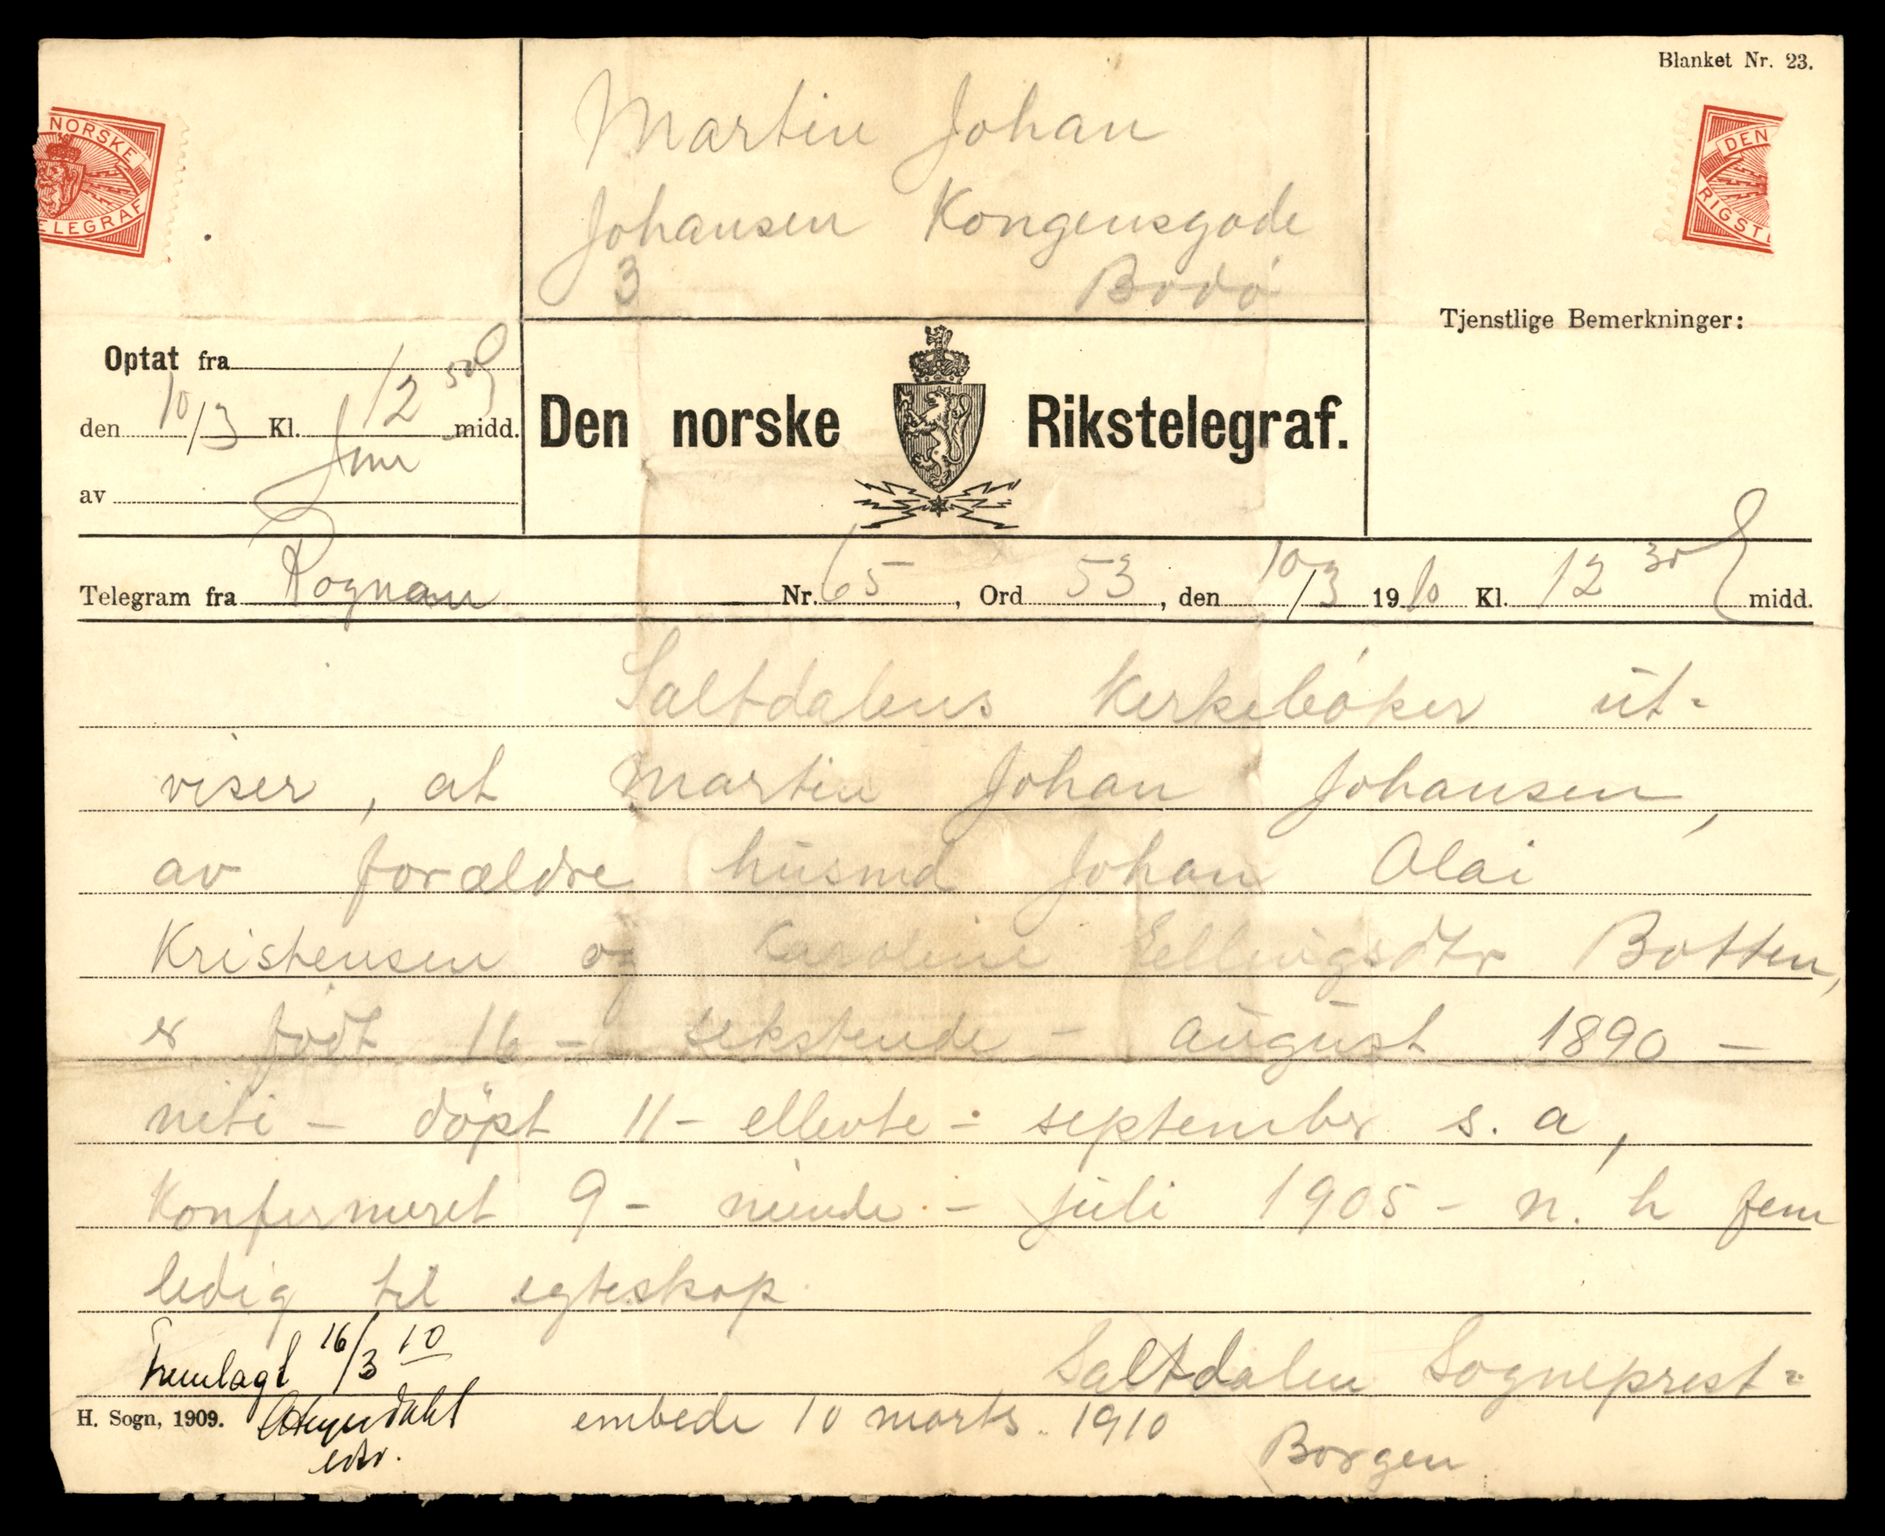 Blanket Nr. 23.
NORSKE
TELEGRAF
DEN
RIGSTE
Martin Johan
Johansen Kongensgade
3 Bodö
Tjenstlige Bemerkninger:
Optat fra
den 10/3 Kl. 12 50 midd.
av
Den norske Rikstelegraf.
Telegram fra Rognan Nr. 65, Ord 53, den 10/3 1910 Kl. 12 30 midd.
Saltdalens kerkebóker ut-
viser, at Martin Johan Johansen,
av forældre husmd Johan Olai
Kristensen og Karoline Ellingsdtr Botten,
er födt 16 - sekstende - august 1890 -
niti - döpt 11 - ellevte - september s. a,
Konfermeret 9 - niende - juli 1905 - n. h fem
ledig til egteskap.
Saltdalen Sogneprest-
embede 10 marts. 1910
Borgen
Fremlagt 16/3 10
H. Sogn, 1909.